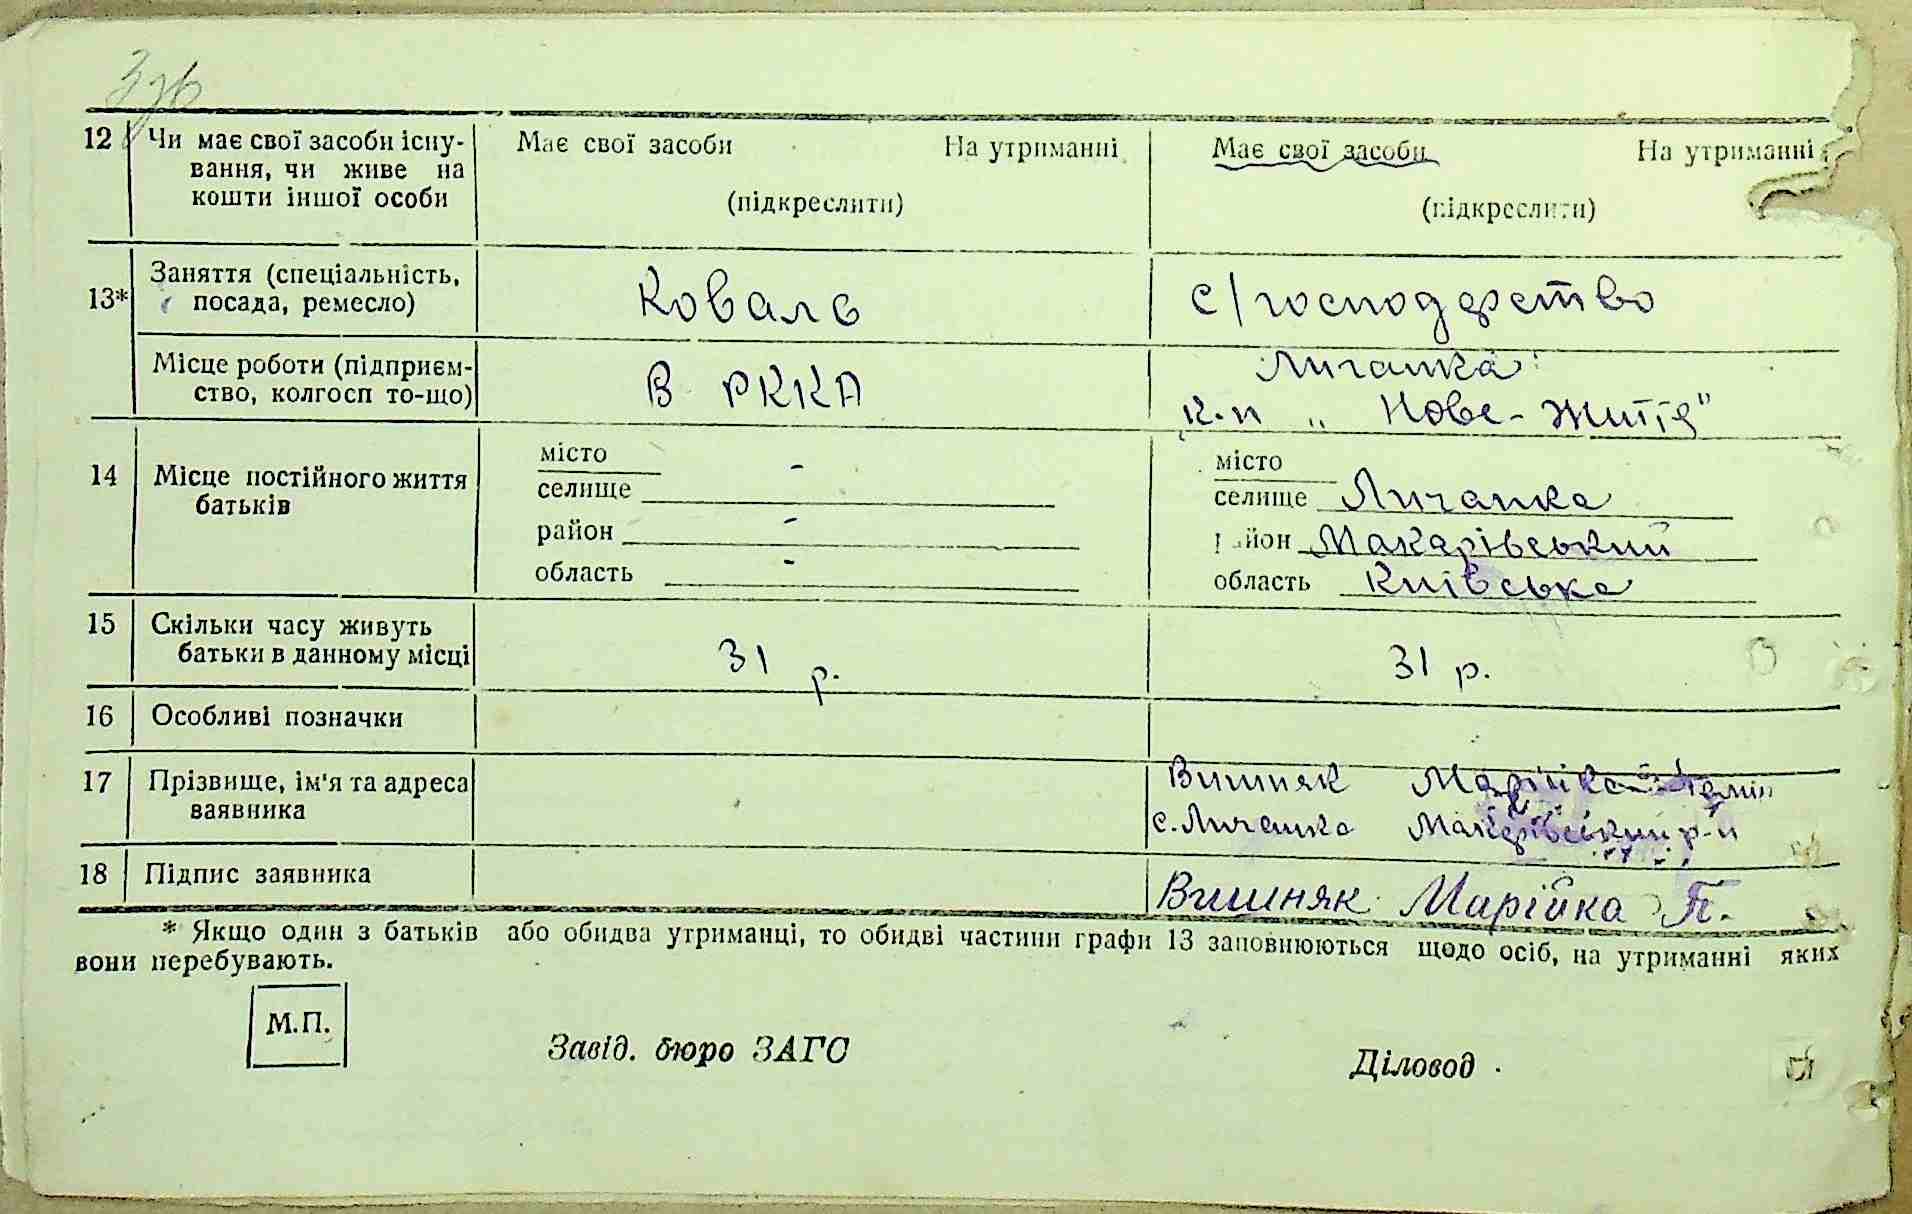 12 Чи має свої засоби існу-
вання, чи живе на
кошти іншої особи
Має свої засоби На утриманні
(підкреслити)
Має свої засоби На утриманні
(підкреслити)
13* Заняття (спеціальність,
посада, ремесло)
Коваль
с/господарство
Місце роботи (підприєм-
ство, колгосп то-що)
В РККА
Личанка
к-п „Нове-життя"
14 Місце постійного життя
батьків
місто -
селище
район -
область -
місто
селище Личанка
район Макарівський
область Київська
15 Скільки часу живуть
батьки в данному місці
31 р.
31 р.
16 Особливі позначки
17 Прізвище, ім'я та адреса
заявника
Вишняк Марійка
с. Личанка Макарівський р-н
18 Підпис заявника
Вишняк Марійка П.
* Якщо один з батьків або обидва утриманці, то обидві частини графи 13 заповнюються щодо осіб, на утриманні яких
вони перебувають.
М.П.
Завід. бюро ЗАГС
Діловод